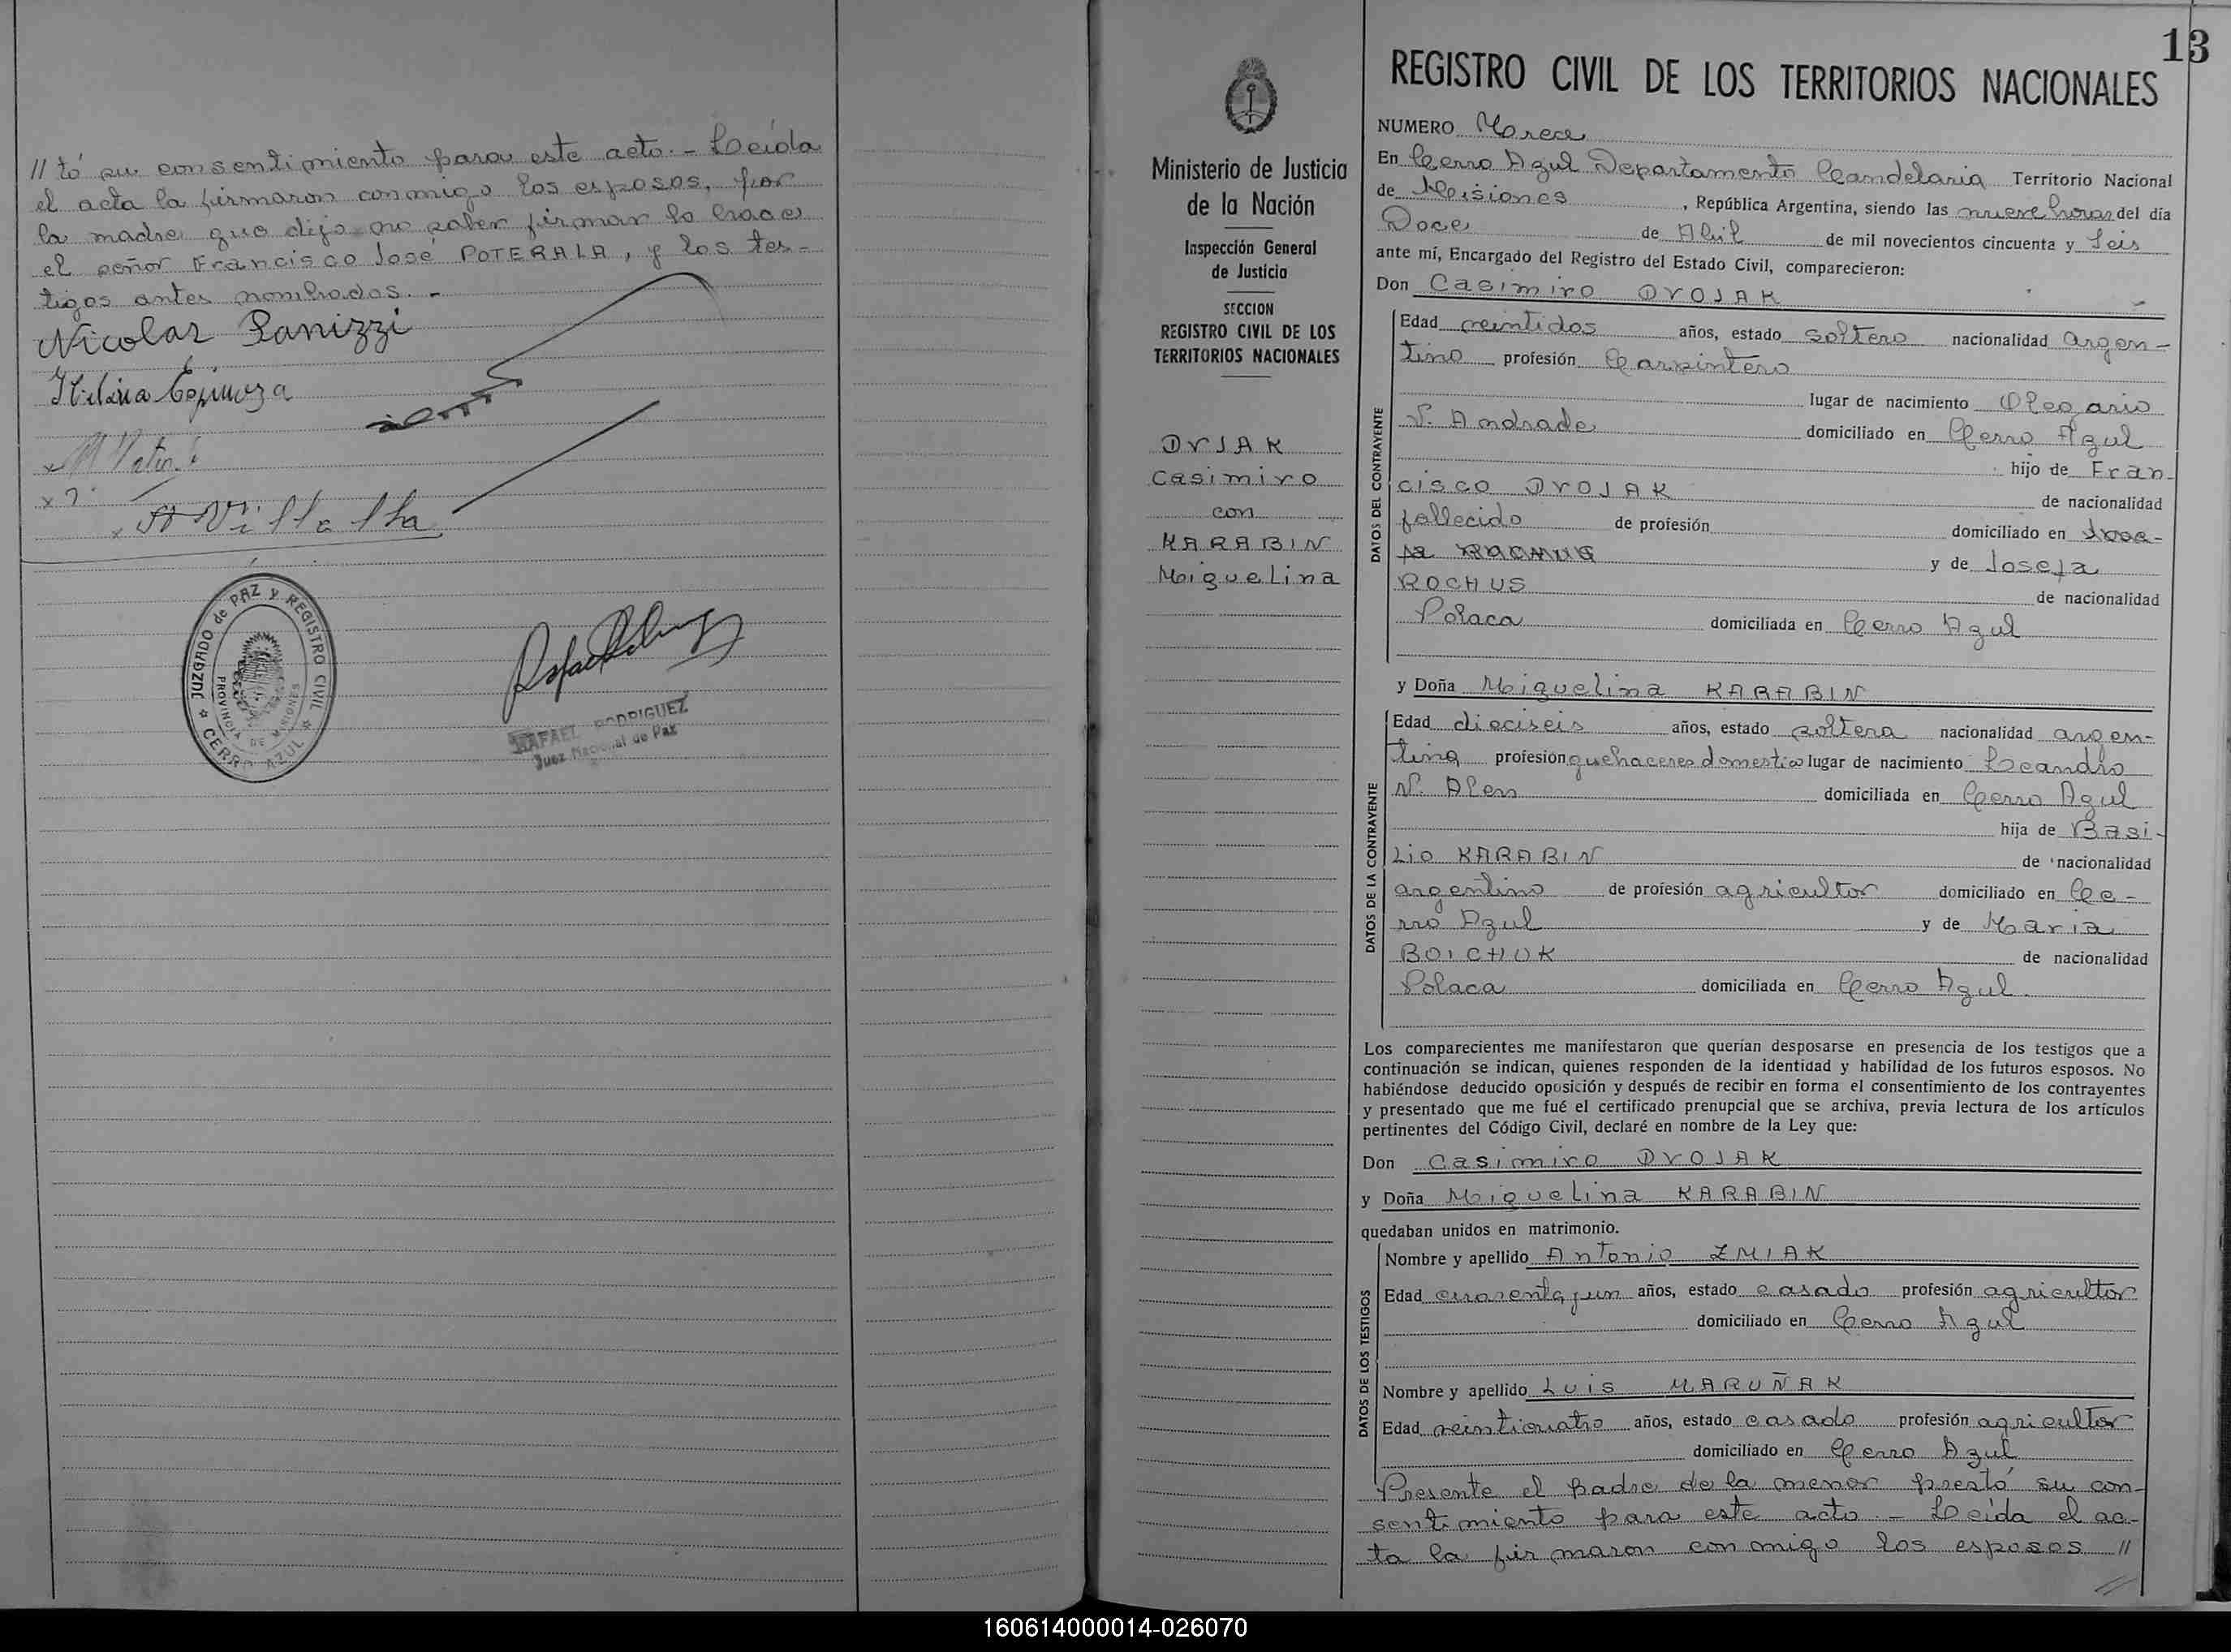 // tó su consentimiento para este acto.- Leida
el acta la firmaron conmigo los esposos, por
la madre que dijo no saber firmar lo hace
el señor Francisco José POTERALA, y los tes-
tigos antes nombrados.-
Nicolas Panizzi
Hilaria Espinoza
Villalba
JUZGADO de PAZ y REGISTRO CIVIL
PROVINCIA DE MISIONES
CERRO AZUL
RAFAEL RODRIGUEZ
Juez Nacional de Paz
13
Ministerio de Justicia
de la Nación
Inspección General
de Justicia
SECCION
REGISTRO CIVIL DE LOS
TERRITORIOS NACIONALES
DVJAK
Casimiro
con
KARABIN
Miguelina
REGISTRO CIVIL DE LOS TERRITORIOS NACIONALES
NUMERO Trece
En Cerro Azul Departamento Candelaria Territorio Nacional
de Misiones, República Argentina, siendo las nueve horas del día
Doce de Abril de mil novecientos cincuenta y Seis
ante mí, Encargado del Registro del Estado Civil, comparecieron:
Don Casimiro DVOJAK
DATOS DEL CONTRAYENTE
Edad veintidos años, estado soltero nacionalidad argen-
tino profesión Carpintero
lugar de nacimiento Olegario
V. Andrade domiciliado en Cerro Azul
hijo de Fran-
cisco DVOJAK de nacionalidad
fallecido de profesión domiciliado en
y de Josefa
ROCHUS de nacionalidad
Polaca domiciliada en Cerro Azul
y Doña Miguelina KARABIN
DATOS DE LA CONTRAYENTE
Edad dieciseis años, estado soltera nacionalidad argen-
tina profesión quehaceres domestico lugar de nacimiento Leandro
N. Alem domiciliada en Cerro Azul
hija de Basi-
lio KARABIN de nacionalidad
argentino de profesión agricultor domiciliado en Ce-
rro Azul y de Maria
BOICHUK de nacionalidad
Polaca domiciliada en Cerro Azul.
Los comparecientes me manifestaron que querían desposarse en presencia de los testigos que a
continuación se indican, quienes responden de la identidad y habilidad de los futuros esposos. No
habiéndose deducido oposición y después de recibir en forma el consentimiento de los contrayentes
y presentado que me fué el certificado prenupcial que se archiva, previa lectura de los artículos
pertinentes del Código Civil, declaré en nombre de la Ley que:
Don Casimiro DVOJAK
y Doña Miguelina KARABIN
quedaban unidos en matrimonio.
DATOS DE LOS TESTIGOS
Nombre y apellido Antonio ZMIAK
Edad cuarenta y un años, estado casado profesión agricultor
domiciliado en Cerro Azul
Nombre y apellido Luis MARUÑAK
Edad veinticuatro años, estado casado profesión agricultor
domiciliado en Cerro Azul
Presente el padre de la menor prestó su con-
sentimiento para este acto - Leida el ac-
ta la firmaron conmigo los esposos //
160614000014-026070